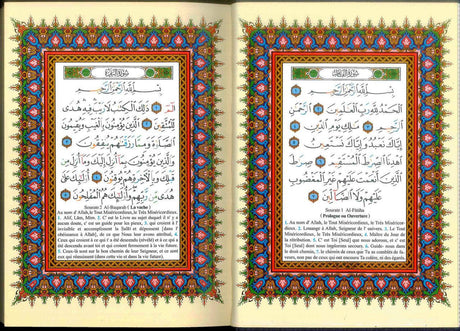 سورة الفاتحة
بِسْمِ اللَّهِ الرَّحْمَٰنِ الرَّحِيمِ
الْحَمْدُ لِلَّهِ رَبِّ الْعَالَمِينَ
الرَّحْمَٰنِ الرَّحِيمِ مَالِكِ يَوْمِ الدِّينِ
إِيَّاكَ نَعْبُدُ وَإِيَّاكَ نَسْتَعِينُ
اهْدِنَا الصِّرَاطَ الْمُسْتَقِيمَ صِرَاطَ
الَّذِينَ أَنْعَمْتَ عَلَيْهِمْ غَيْرِ الْمَغْضُوبِ
عَلَيْهِمْ وَلَا الضَّالِّينَ
Sourate 1 Al-Fatiha
( Prologue ou Ouverture )
1. Au nom d'Allah, le Tout Miséricordieux, le Très Miséricordieux. 2. Louange à Allah, Seigneur de l'univers. 3. Le Tout Miséricordieux, le Très Miséricordieux, 4. Maître du Jour de la rétribution. 5. C'est Toi [Seul] que nous adorons, et c'est Toi [Seul] dont nous implorons secours. 6. Guide-nous dans le droit chemin, 7. le chemin de ceux que Tu as comblés de faveurs, non pas de ceux qui ont encouru Ta colère, ni des égarés.
سورة البقرة
بِسْمِ اللَّهِ الرَّحْمَٰنِ الرَّحِيمِ
الم ذَٰلِكَ الْكِتَابُ لَا رَيْبَ فِيهِ هُدًى
لِلْمُتَّقِينَ الَّذِينَ يُؤْمِنُونَ بِالْغَيْبِ وَيُقِيمُونَ
الصَّلَاةَ وَمِمَّا رَزَقْنَاهُمْ يُنْفِقُونَ وَالَّذِينَ
يُؤْمِنُونَ بِمَا أُنْزِلَ إِلَيْكَ وَمَا أُنْزِلَ مِنْ
قَبْلِكَ وَبِالْآخِرَةِ هُمْ يُوقِنُونَ أُولَٰئِكَ عَلَىٰ
هُدًى مِنْ رَبِّهِمْ وَأُولَٰئِكَ هُمُ الْمُفْلِحُونَ
Sourate 2 Al-Baqarah ( La vache )
Au nom d'Allah, le Tout Miséricordieux, le Très Miséricordieux.
1. Alif, Lâm, Mim. 2. C'est le Livre au sujet duquel il n'y a aucun doute, c'est un guide pour les pieux, 3. qui croient à l'invisible et accomplissent la Salât et dépensent (dans l'obéissance à Allah), de ce que Nous leur avons attribué, 4. Ceux qui croient à ce qui t'a été descendu (révélé) et à ce qui a été descendu avant toi et qui croient fermement à la vie future. 5. Ceux-là sont sur le bon chemin de leur Seigneur, et ce sont eux qui réussissent (dans cette vie et dans la vie future).